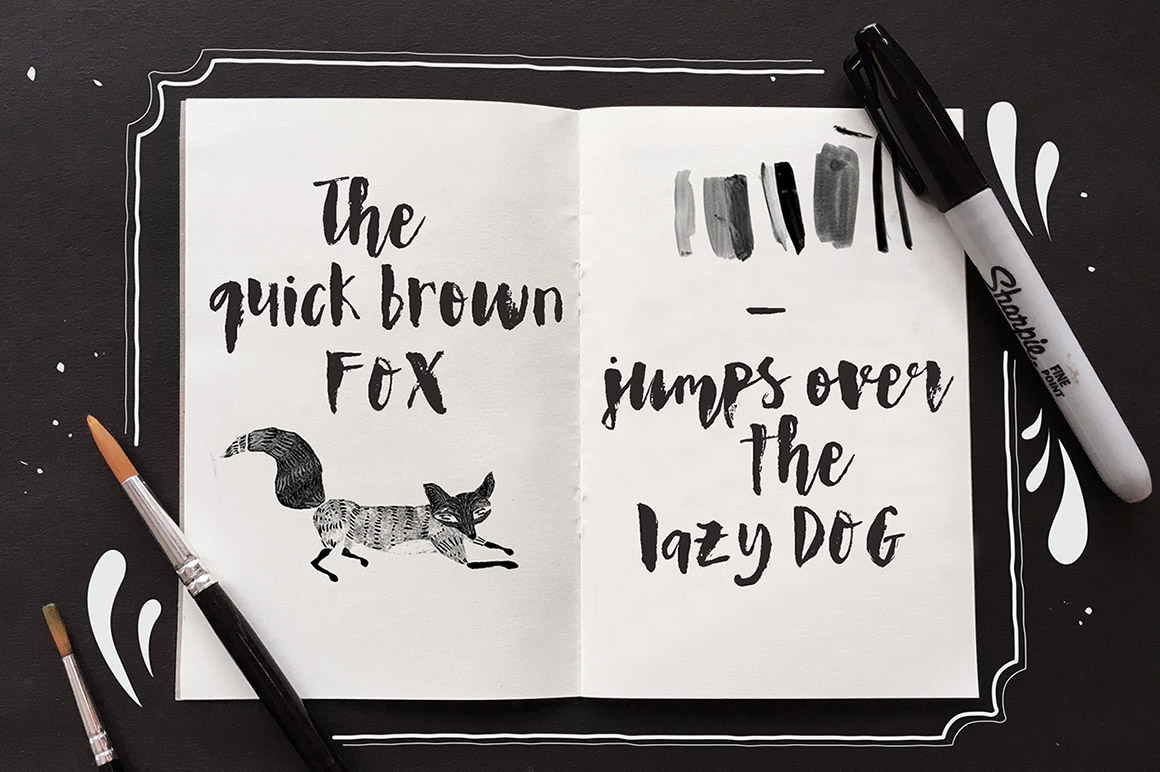 The
quick brown
FOX
—
jumps over
the
lazy DOG
Sharpie.
FINE
POINT